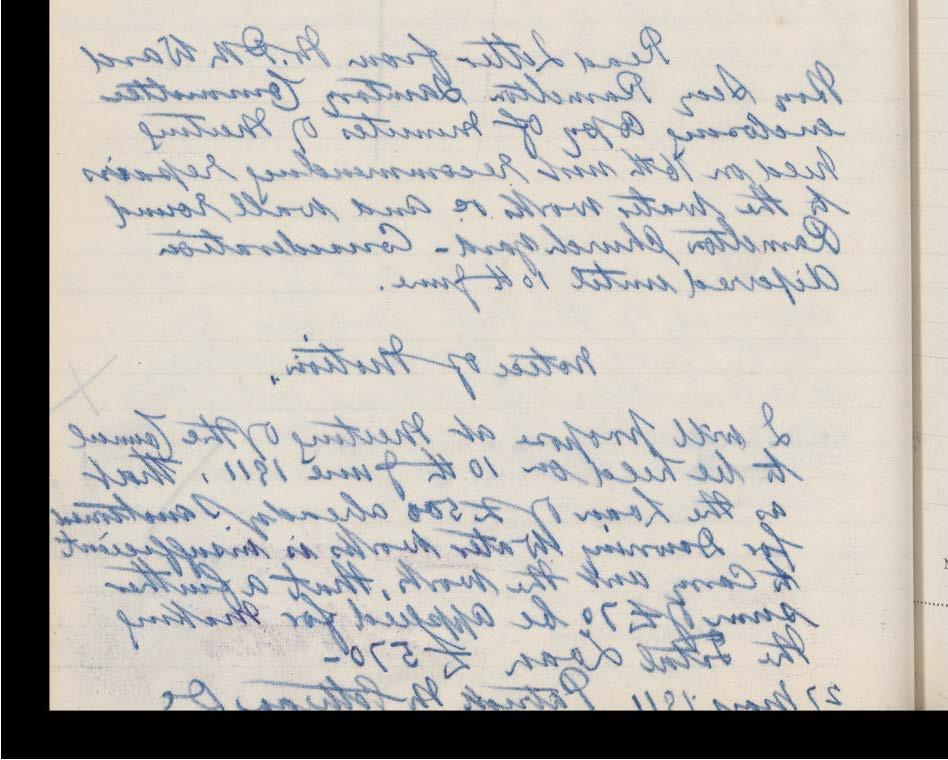 Read Letter from W. P. M Ward
Hon Secy Ramelton Sanitary Committee
enclosing copy of minutes of Meeting
held on 16th inst recommending repairs
to the water works &c and wall round
Ramelton Church Yard - Consideration
deferred until 10th June.
Notice of Motion.
I will propose at Meeting of the Council
to be held on 10th June 1911, that
as the Loan of £500 already Sanctioned
for Downing Water Works is insufficient
to carry out the work, that a further
sum of £70 be applied for making
the total Loan £570-
27 May 1911 Patrick